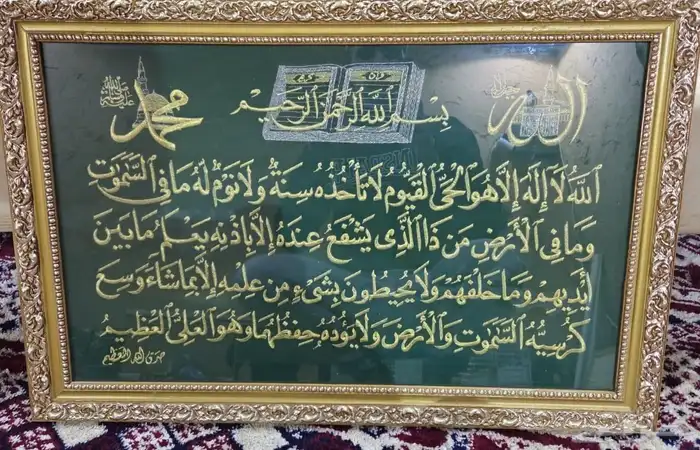 الله جل جلاله
محمد صلى الله عليه وسلم
بِسْمِ ٱللَّهِ ٱلرَّحْمَٰنِ ٱلرَّحِيمِ
ٱللَّهُ لَا إِلَٰهَ إِلَّا هُوَ ٱلْحَىُّ ٱلْقَيُّومُ لَا تَأْخُذُهُ سِنَةٌ وَلَا نَوْمٌ لَهُ مَا فِى ٱلسَّمَٰوَٰتِ
وَمَا فِى ٱلْأَرْضِ مَن ذَا ٱلَّذِى يَشْفَعُ عِندَهُ إِلَّا بِإِذْنِهِ يَعْلَمُ مَا بَيْنَ
أَيْدِيهِمْ وَمَا خَلْفَهُمْ وَلَا يُحِيطُونَ بِشَىْءٍ مِنْ عِلْمِهِ إِلَّا بِمَا شَاءَ وَسِعَ
كُرْسِيُّهُ ٱلسَّمَٰوَٰتِ وَٱلْأَرْضَ وَلَا يَئُودُهُ حِفْظُهُمَا وَهُوَ ٱلْعَلِىُّ ٱلْعَظِيمُ
صدق الله العظيم